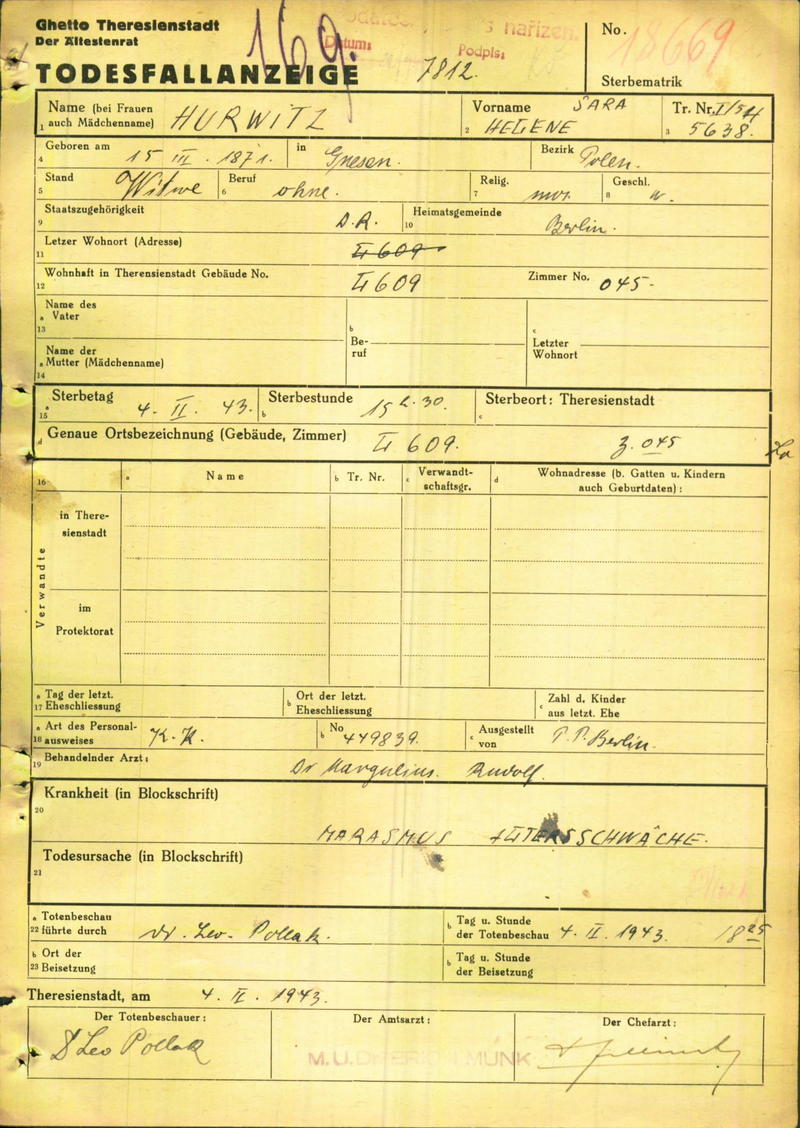 Ghetto Theresienstadt
Der Ältestenrat
TODESFALLANZEIGE
169.
nařízen.
Datum:
Podpis:
7812.
No. 18669
Sterbematrik
Name (bei Frauen
1 auch Mädchenname) HURWITZ
Vorname SARA
2 HELENE
Tr. Nr. I/54
3 5638.
Geboren am
4 15 III. 1871. in Gnesen. Bezirk Polen.
Stand
5 Witwe
Beruf
6 ohne.
Relig.
7 mos.
Geschl.
8 w.
Staatszugehörigkeit
9 D.R.
Heimatsgemeinde
10 Berlin.
Letzer Wohnort (Adresse)
11 L 609
Wohnhaft in Theresienstadt Gebäude No.
12 L 609 Zimmer No. 045-
Name des
a Vater
13
b Be-
ruf
c Letzter
Wohnort
Name der
a Mutter (Mädchenname)
14
Sterbetag
a 15 4. II. 43.
Sterbestunde
b 15 h. 30.
Sterbeort: Theresienstadt
c
d Genaue Ortsbezeichnung (Gebäude, Zimmer) L 609. Z. 045
16 a Name b Tr. Nr. c Verwandt-
schaftsgr. d Wohnadresse (b. Gatten u. Kindern
auch Geburtdaten) :
Verwandte
in There-
sienstadt
im
Protektorat
a Tag der letzt.
17 Eheschliessung
b Ort der letzt.
Eheschliessung
c Zahl d. Kinder
aus letzt. Ehe
a Art des Personal-
18 ausweises K.K.
b No 449839.
c Ausgestellt
von P.P. Berlin.
Behandelnder Arzt:
19 Dr Margulius. Rudolf.
Krankheit (in Blockschrift)
20
MARASMUS ALTERSSCHWÄCHE.
Todesursache (in Blockschrift)
21
a Totenbeschau
22 führte durch Dr. Leo Pollak.
b Tag u. Stunde
der Totenbeschau 4. II. 1943. 18 25
b Ort der
23 Beisetzung
b Tag u. Stunde
der Beisetzung
Theresienstadt, am 4. II. 1943.
Der Totenbeschauer: Der Amtsarzt: Der Chefarzt:
Dr Leo Pollak
MUNK